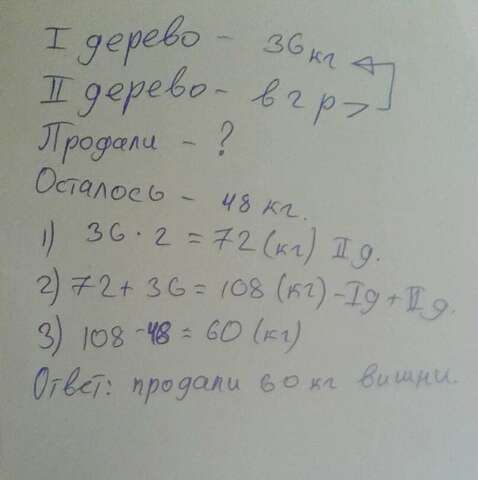 I дерево - 36 кг
II дерево - в 2 р >
Продали - ?
Осталось - 48 кг.
1) 36 · 2 = 72 (кг) II д.
2) 72 + 36 = 108 (кг) - I д + II д.
3) 108 - 48 = 60 (кг)
Ответ: продали 60 кг вишни.